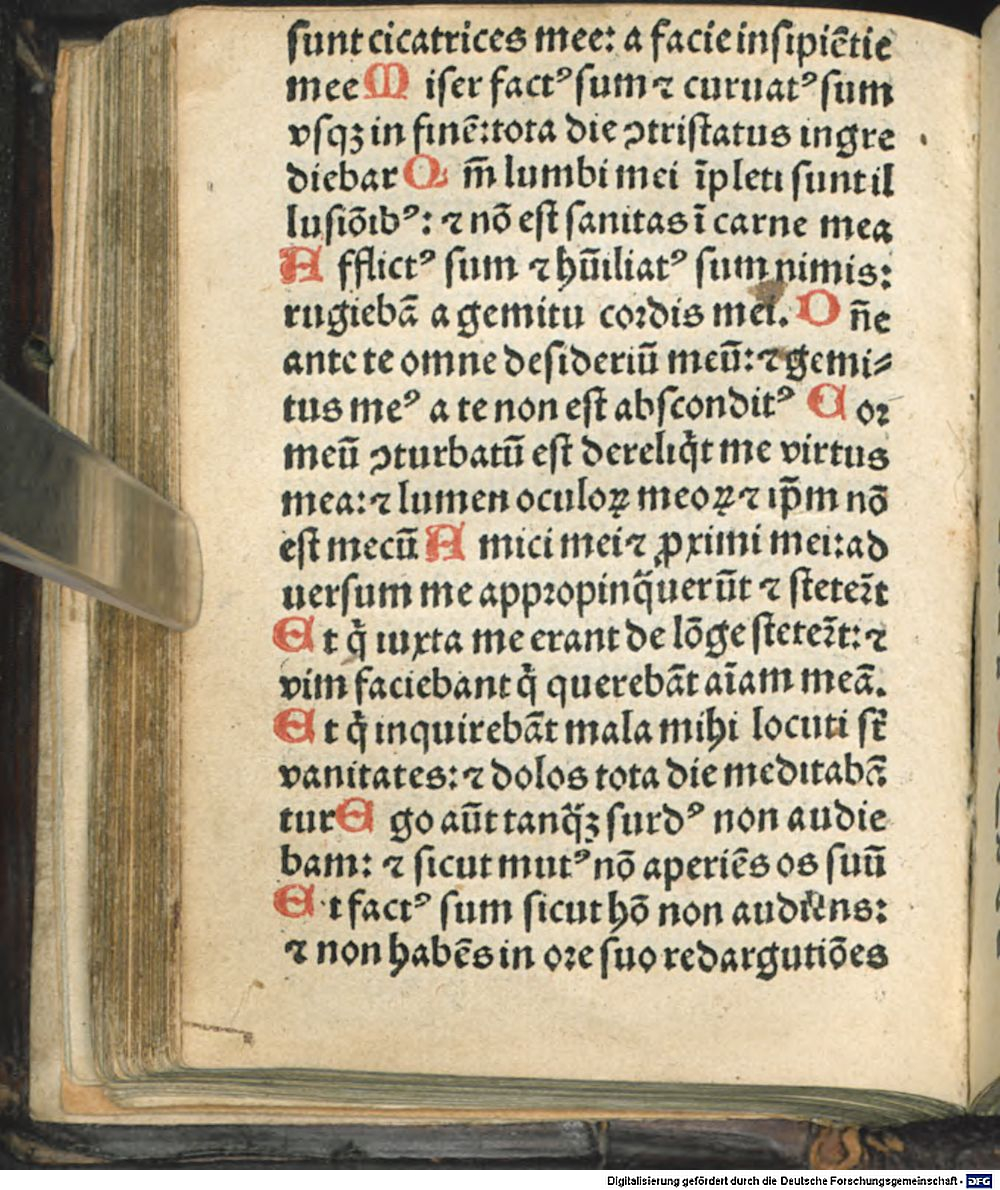 sunt cicatrices mee: a facie insipiẽtie
mee M iser factꝰ sum ⁊ curuatꝰ sum
vsqꝫ in finẽ: tota die ꝯtristatus ingre
diebar Q m̃ lumbi mei ĩpleti sunt il
lusiõibꝰ: ⁊ nõ est sanitas ĩ carne mea
A fflictꝰ sum ⁊ hũiliatꝰ sum nimis:
rugiebã a gemitu coꝛdis mei. D ñe
ante te omne desideriũ meũ: ⁊ gemi⸗
tus meꝰ a te non est absconditꝰ C oꝛ
meũ ꝯturbatũ est dereliq̇t me virtus
mea: ⁊ lumen oculoꝝ meoꝝ ⁊ ip̃m nõ
est mecũ A mici mei ⁊ ꝓximi mei: ad
uersum me appꝛopinq̃uerũt ⁊ steteꝛ̃t
E t q̇ iuxta me erant de lõge steteꝛ̃t: ⁊
vim faciebant q̇ querebãt aĩam meã.
E t q̇ inquirebãt mala mihi locuti st̃
vanitates: ⁊ dolos tota die meditabã
tur E go aũt tanq̃ꝫ surdꝰ non audie
bam: ⁊ sicut mutꝰ nõ aperiẽs os suũ
E t factꝰ sum sicut hõ non audiens:
⁊ non habẽs in oꝛe suo redargutiões
Digitalisierung gefördert durch die Deutsche Forschungsgemeinschaft - DFG